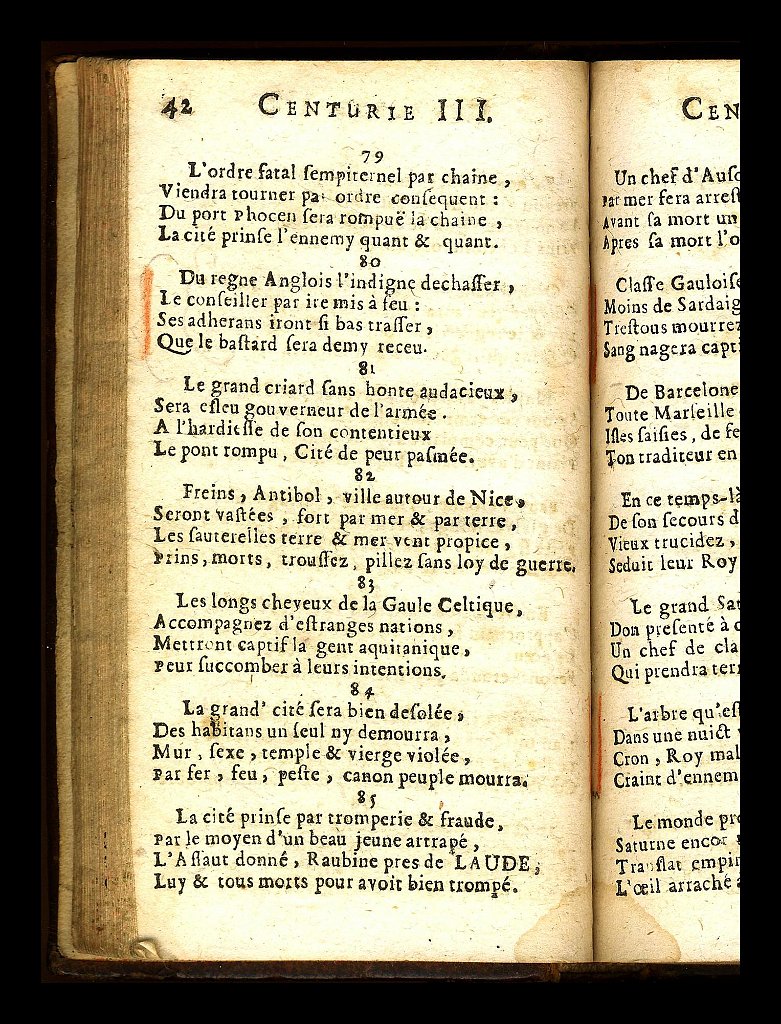 42 CENTURIE III.
79
L'ordre fatal ſempiternel par chaine,
Viendra tourner par ordre conſequent:
Du port Phocen ſera rompuë la chaine,
La cité prinſe l'ennemy quant & quant.
80
Du regne Anglois l'indigne dechaſſer,
Le conſeiller par ire mis à feu:
Ses adherans iront ſi bas traſſer,
Que le baſtard ſera demy receu.
81
Le grand criard ſans honte audacieux,
Sera eſleu gouverneur de l'armée.
A l'hardieſſe de ſon contentieux
Le pont rompu, Cité de peur paſmée.
82
Freins, Antibol, ville autour de Nice,
Seront vaſtées, fort par mer & par terre,
Les ſauterelles terre & mer vent propice,
Prins, morts, trouſſez, pillez ſans loy de guerre.
83
Les longs cheveux de la Gaule Celtique,
Accompagnez d'eſtranges nations,
Mettront captif la gent aquitanique,
Peur ſuccomber à leurs intentions.
84
La grand' cité ſera bien deſolée,
Des habitans un ſeul ny demourra,
Mur, ſexe, temple & vierge violée,
Par fer, feu, peſte, canon peuple mourra.
85
La cité prinſe par tromperie & fraude,
Par le moyen d'un beau jeune attrapé,
L'Aſſaut donné, Raubine pres de LAUDE,
Luy & tous morts pour avoit bien trompé.
CEN
Un chef d'Auſo
Par mer fera arreſt
Avant ſa mort un
Apres ſa mort l'o
Claſſe Gauloiſe
Moins de Sardaig
Treſtous mourrez
Sang nagera capti
De Barcelone
Toute Marſeille
Iſles ſaiſies, de fe
Ton traditeur en
En ce temps-là
De ſon ſecours d
Vieux trucidez,
Seduit leur Roy
Le grand Sat
Don preſenté à
Un chef de cla
Qui prendra terr
L'arbre qu'eſt
Dans une nuict
Cron, Roy mal
Craint d'ennem
Le monde pro
Saturne encor
Tranſlat empir
L'œil arraché